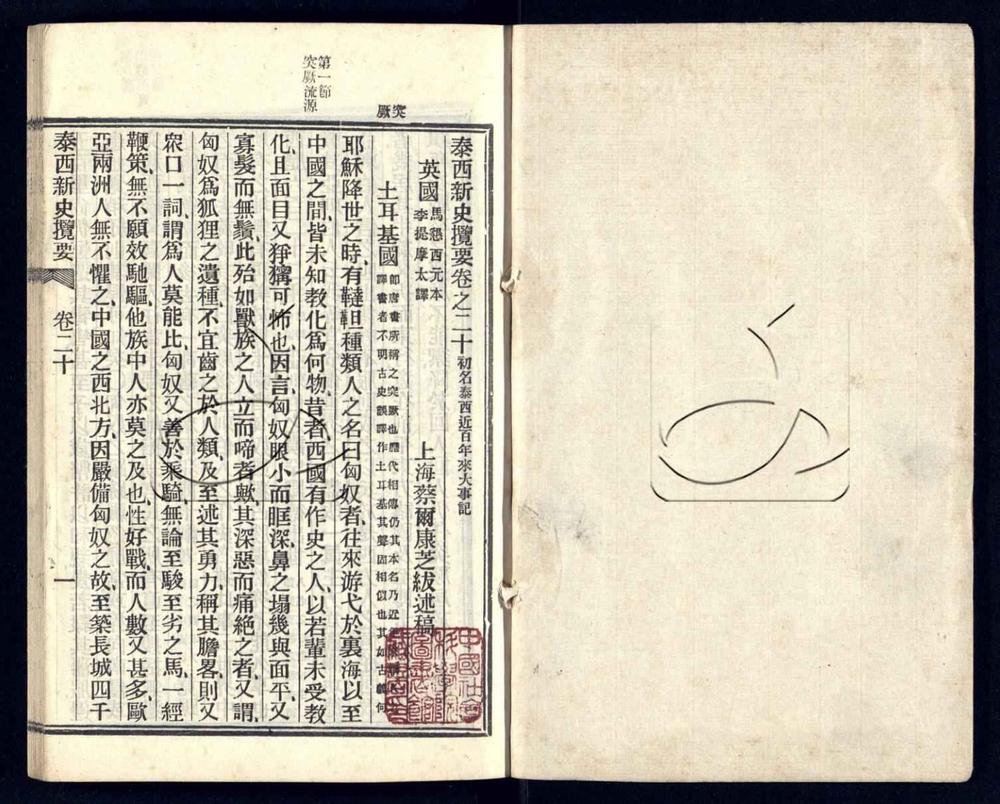 泰西新史攬要卷之二十 初名泰西近百年來大事記
英國 馬懇西元本
李提摩太譯
上海蔡爾康芝紱述稿
突厥
土耳基國
即唐書所稱之突厥也歷代相傳仍其本名乃近
譯書者不明古史誤譯作土耳基其聲固相似也其如古義何
第一節
突厥流源
耶穌降世之時、有韃靼種類人之名曰匈奴者、往來游弋於裏海以至
中國之間、皆未知教化爲何物、昔者、西國有作史之人、以若輩未受教
化、且面目又猙獰可怖也、因言、匈奴眼小而眶深、鼻之塌幾與面平、又
寡髮而無鬚、此殆如獸族之人立而啼者歟、其深惡而痛絕之者、又謂、
匈奴爲狐狸之遺種、不宜齒之於人類、及至述其勇力、稱其膽畧、則又
衆口一詞、謂爲人莫能比、匈奴又善於乘騎、無論至駿至劣之馬、一經
鞭策、無不願效馳驅、他族中人亦莫之及也、性好戰、而人數又甚多、歐
亞兩洲人無不懼之、中國之西北方、因嚴備匈奴之故、至築長城四千
泰西新史攬要 卷二十 一
中國社會
科學院
圖書館